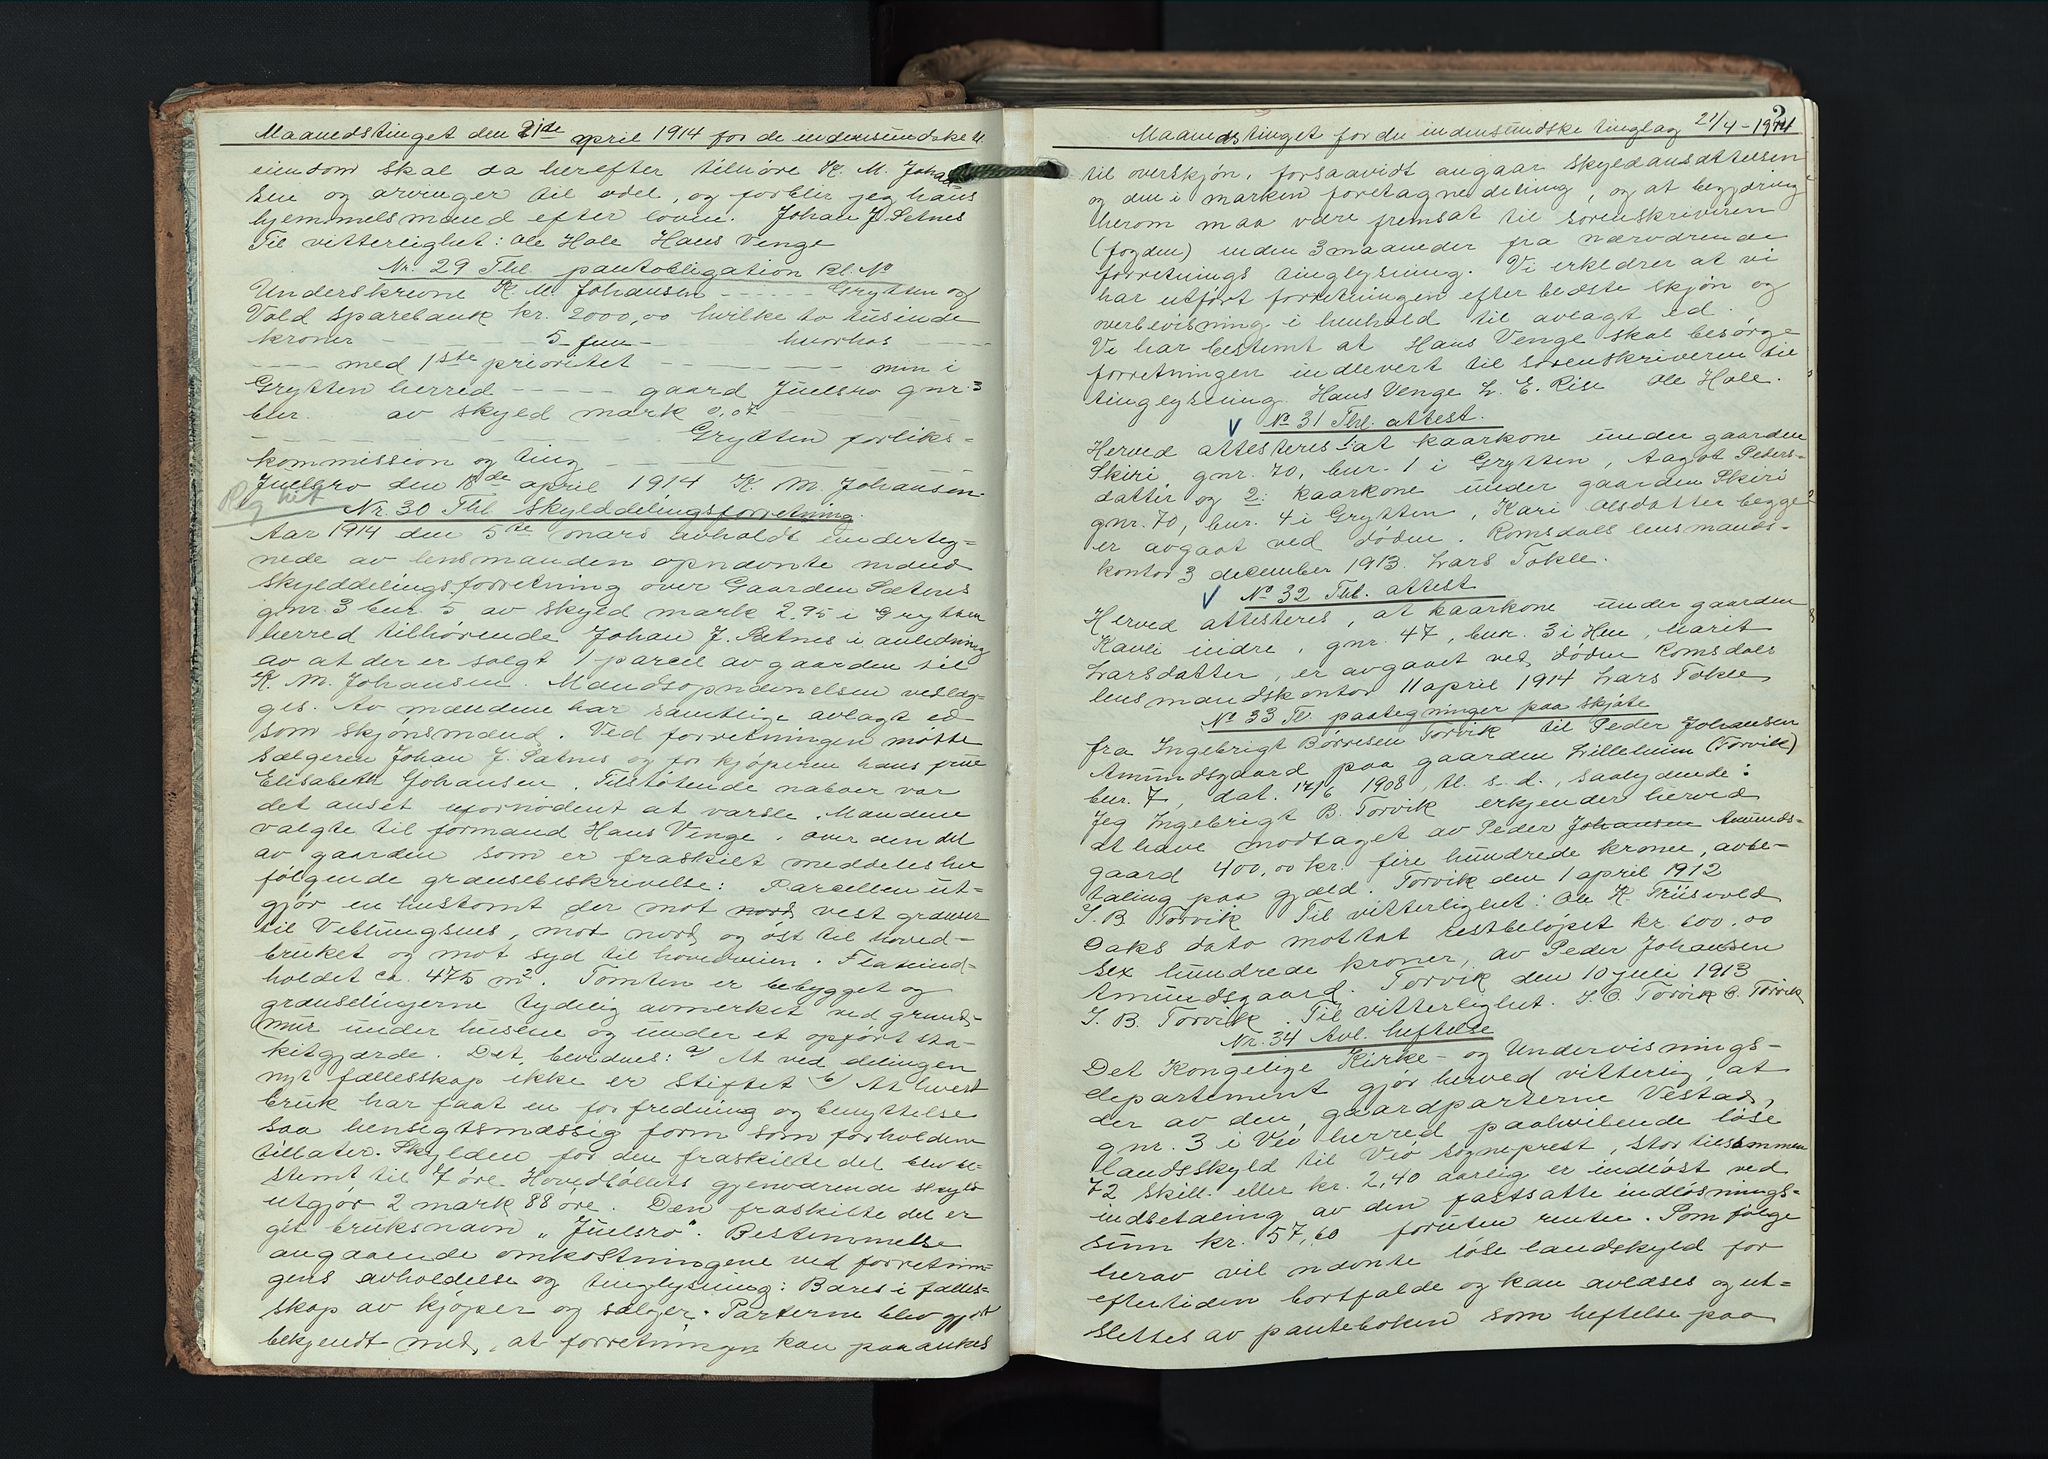 Maanedstinget den 21de april 1914 for de indensundske tl.
eiendom skal da herefter tilhøre K. M. Johan-
sen og arvinger til odel, og forblir jeg hans
hjemmelsmand efter loven. Johan J. Sætnes
Til vitterlighet: Ole Hole Hans Venge
Nr. 29 Thl. pantobligation Bl. No
Underskrevne K. M. Johansen - - - - - Grytten og
Vold sparebank kr. 2000,00 hvilke to tusende
kroner - - - - 5 fem - - - - hvorhos - - - -
- - - - med 1ste prioritet - - - - - - - min i
Grytten herred - - - - gaard Juelsro gnr. 3
bnr. av skyld mark 0,07 - - - - - -
- - - - - - - - - - - Grytten forliks-
kommission og ting - - - - - - - - - -
Juelsro den 18de april 1914 K. M. Johansen.
Reg hit
Nr. 30 Thl. Skylddelingsforretning.
Aar 1914 den 5te mars avholdt underteg-
nede av lensmanden opnævnte mænd
skylddelingsforretning over Gaarden Sætnes
gnr. 3 bnr. 5 av skyld mark 2,95 i Grytten
herred tilhørende Johan J. Sætnes i anledning
av at der er solgt 1 parcel av gaarden til
K. M. Johansen. Mandsopnævnelsen vedlæg-
ges. Av mændene har samtlige avlagt ed
som skjønsmænd. Ved forretningen møtte
sælgeren Johan J. Sætnes og for kjøperen hans frue
Elisabeth Johansen. Tilstøtende naboer var
det anset ufornødent at varsle. Mændene
valgte til formand Hans Venge. Over den del
av gaarden som er fraskilt meddeles her
følgende grænsebeskrivelse: Parcellen ut-
gjør en hustomt der mot nord vest grænser
til Veblungsnes, mot nord og øst til hoved-
bruket og mot syd til hovedveien. Flateind-
holdet ca. 475 m2. Tomten er bebygget og
grænselinjerne tydelig avmerket ved grund-
mur under husene og under et opført sta-
kitgjærde. Det bevidnes: a) At ved delingen
nyt fællesskap ikke er stiftet b) At hvert
bruk har faat en for fredning og benyttelse
saa hensigtsmæssig form som forholdene
tillater. Skylden for den fraskilte del blev be-
stemt til 7 øre Hovedbølets gjenværende skyld
utgjør 2 mark 88 øre. Den fraskilte del er
git bruksnavn "Juelsro". Bestemmelse
angaaende omkostningene ved forretnin-
gens avholdelse og tinglysning: Bæres i fælles-
skap av kjøper og sælger. Parterne blev gjort
bekjendt med, at forretningen kan paaankes
Maanedstinget for de indensundske tinglag 21/4-1914
2
til overskjøn, forsaavidt angaar skyldansættelsen
og den i marken foretagne deling, og at begjæring
herom maa være fremsat til sorenskriveren
(fogden) inden 3 maaneder fra nærværende
forretnings tinglysning. Vi erklærer at vi
har utført forretningen efter bedste skjøn og
overbevisning i henhold til avlagt ed.
Vi har bestemt at Hans Venge skal besørge
forretningen indlevert til sorenskriveren til
tinglysning. Hans Venge L. E. Rise Ole Hole.
No 31 Thl. attest.
Herved attesteres 1: at kaarkone under gaarden
Skiri, gnr. 70, bnr. 1 i Grytten, Aagot Peders-
datter og 2: kaarkone under gaarden Skiri
gnr. 70, bnr. 4 i Grytten, Kari Olsdatter begge
er avgaat ved døden. Romsdals lensmands-
kontor 3 december 1913. Lars Tokle.
No 32 Thl. attest
Herved attesteres, at kaarkone under gaarden
Kavli indre, gnr. 47, bnr. 3 i Hen, Marit
Larsdatter, er avgaaet ved døden Romsdals
lensmandskontor 11 april 1914 Lars Tokle
No 33 Tl. paategninger paa skjøte
fra Ingebrigt Børresen Torvik til Peder Johansen
Amundsgaard paa gaarden Lilleheim (Torvik)
bnr. 7, dat. 14/6 1908, tl. s. d., saalydende:
Jeg Ingebrigt B. Torvik erkjender herved
at have modtaget av Peder Johansen Amunds-
gaard 400,00 kr. fire hundrede kroner, avbe-
taling paa gjæld. Torvik den 1 april 1912
I. B. Torvik Til vitterlighet: Ole K. Trusvold
Daks dato mottat restbeløpet kr. 600.00
sex hundrede kroner, av Peder Johansen
Amundsgaard. Torvik den 10 juli 1913
I. B. Torvik. Til vitterlighet. S. O. Torvik O. Torvik
Nr. 34 Avl. heftelse
Det Kongelige Kirke- og Undervisnings-
departement gjør herved vitterlig, at
der av den, gaardparterne Vestad,
gnr. 3 i Veø herred paahvilende løse
landsskyld til Veø sogneprest, stor tilsammen
72 skill. eller kr. 2,40 aarlig er indløst ved
indbetaling av den fastsatte indløsnings-
sum kr. 57,60 foruten renter. Som følge
herav vil nævnte løse landskyld for
eftertiden bortfalde og kan avlæses og ut-
slettes av panteboken som heftelse paa